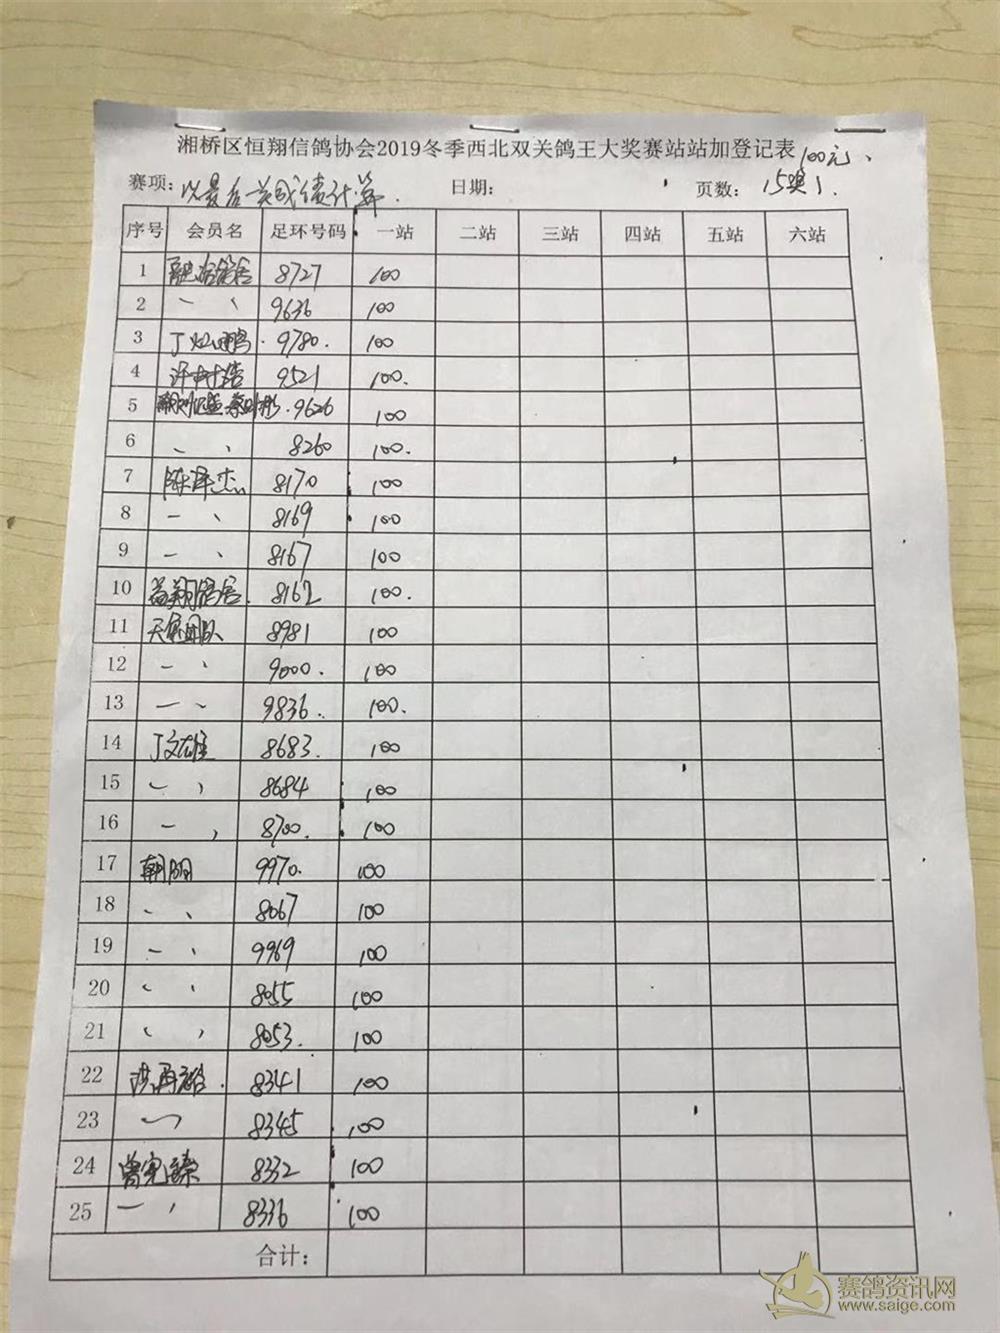 湘桥区恒翔信鸽协会2019冬季西北双关鸽王大奖赛站站加登记表 100元、
赛项: 以最后一关成绩计算. 日期: 页数: 15奖1.
序号 会员名 足环号码 一站 二站 三站 四站 五站 六站
1 8727 100
2 一 、 9636 100
3 丁灿鹏. 9780. 100
4 许树浩 9521 100.
5 9626 100
6 一 、 8260 100.
7 陈泽杰 8170 100
8 一 、 8169 100
9 一 、 8167 100
10 翔鸽舍. 8162 100.
11 团队 8981 100
12 一 、 9000. 100
13 一 、 9836. 100.
14 丁文雄 8683. 100
15 一 、 8684 100
16 一 、 8700. 100
17 朝阳 9970. 100
18 一 、 8067 100
19 一 、 9969 100
20 一 、 8055 100
21 一 、 8053. 100
22 洪再裕. 8341 100
23 一 、 8345 100
24 曾宪臻 8332 100
25 一 、 8336 100
合计:
赛鸽资讯网
www.saige.com